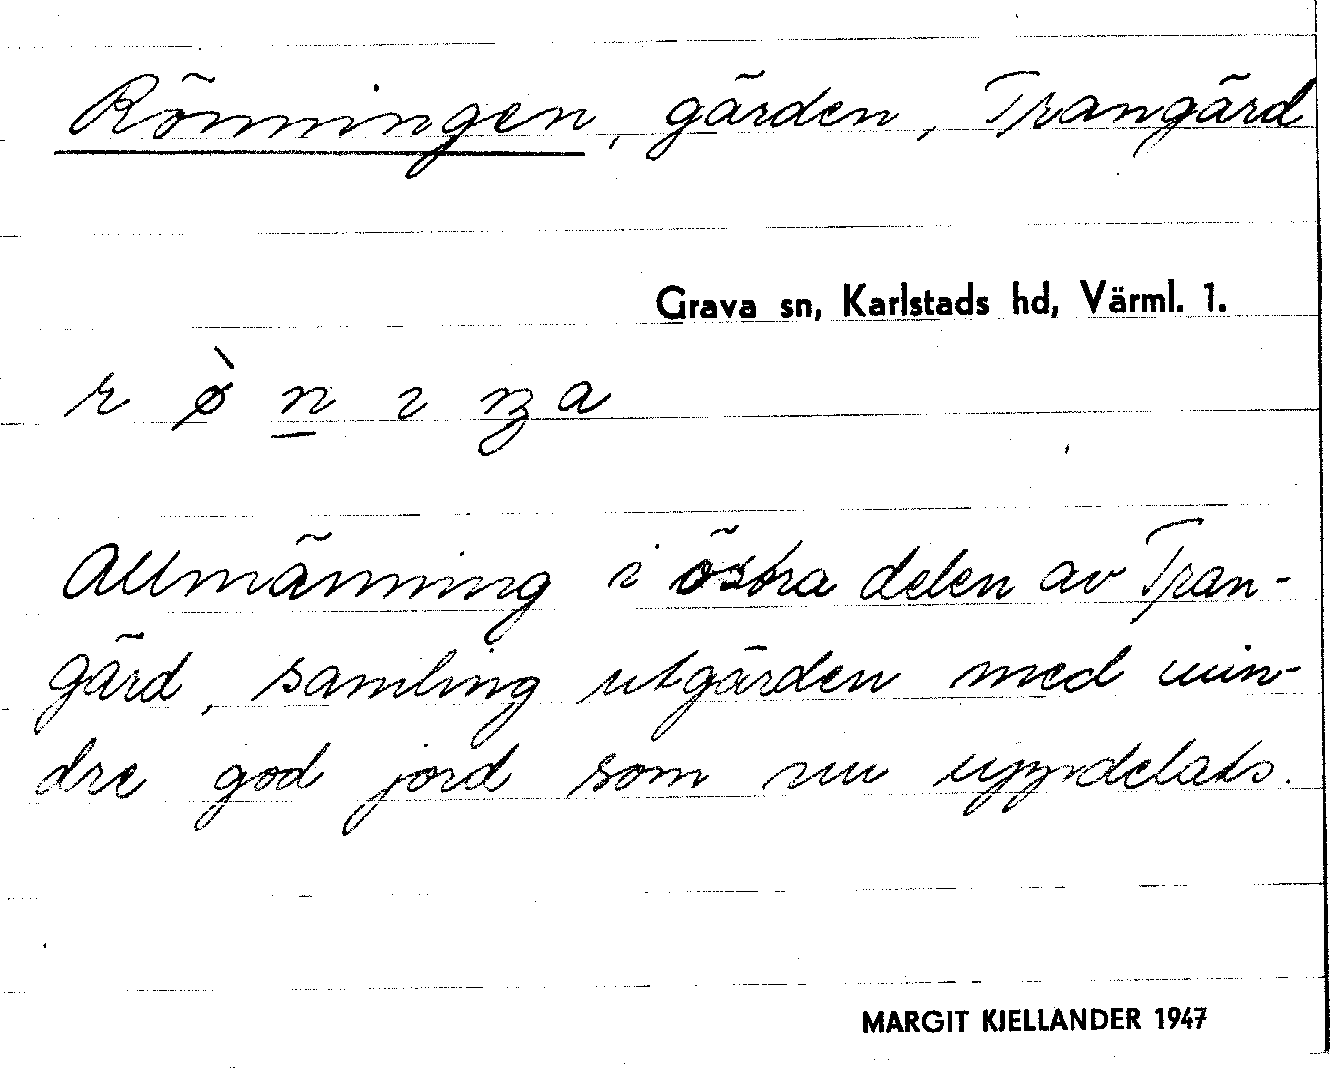 Rönningen, gärden, Trangärd
Grava sn, Karlstads hd, Värml. 1.
r ø̀ n̲ ɩ ŋ a
Allmänning i östra delen av Tran-
gärd, samling utgärden med min-
dre god jord som nu uppdelats.
MARGIT KJELLANDER 1947